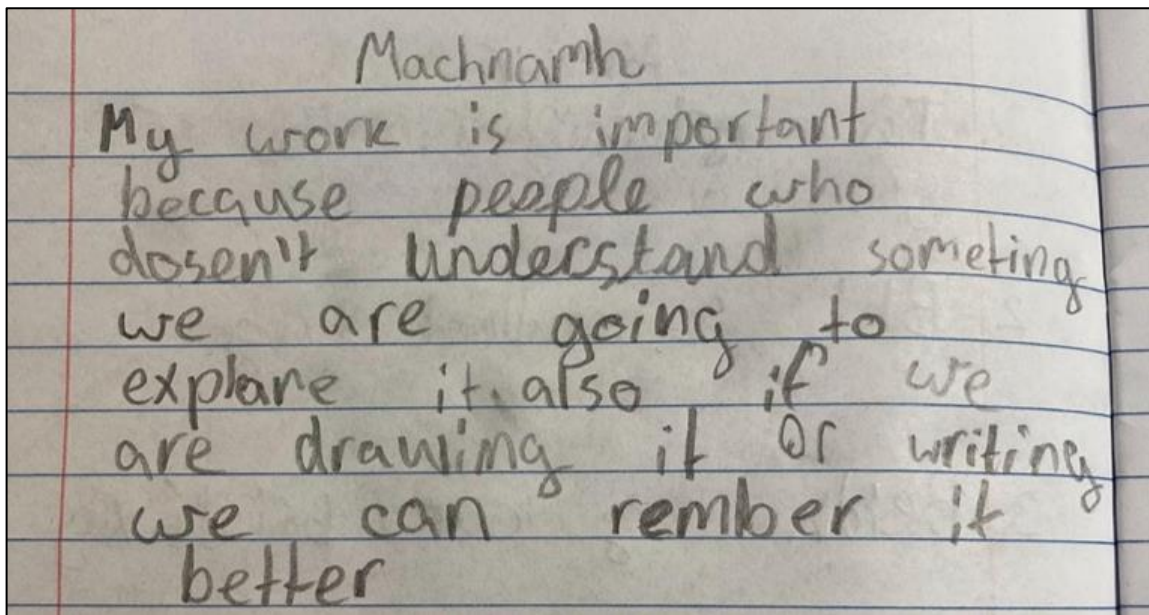 Machnamh
My work is important
because people who
dosen't understand someting
we are going to
explane it. also if we
are drawing it or writing
we can rember it
better